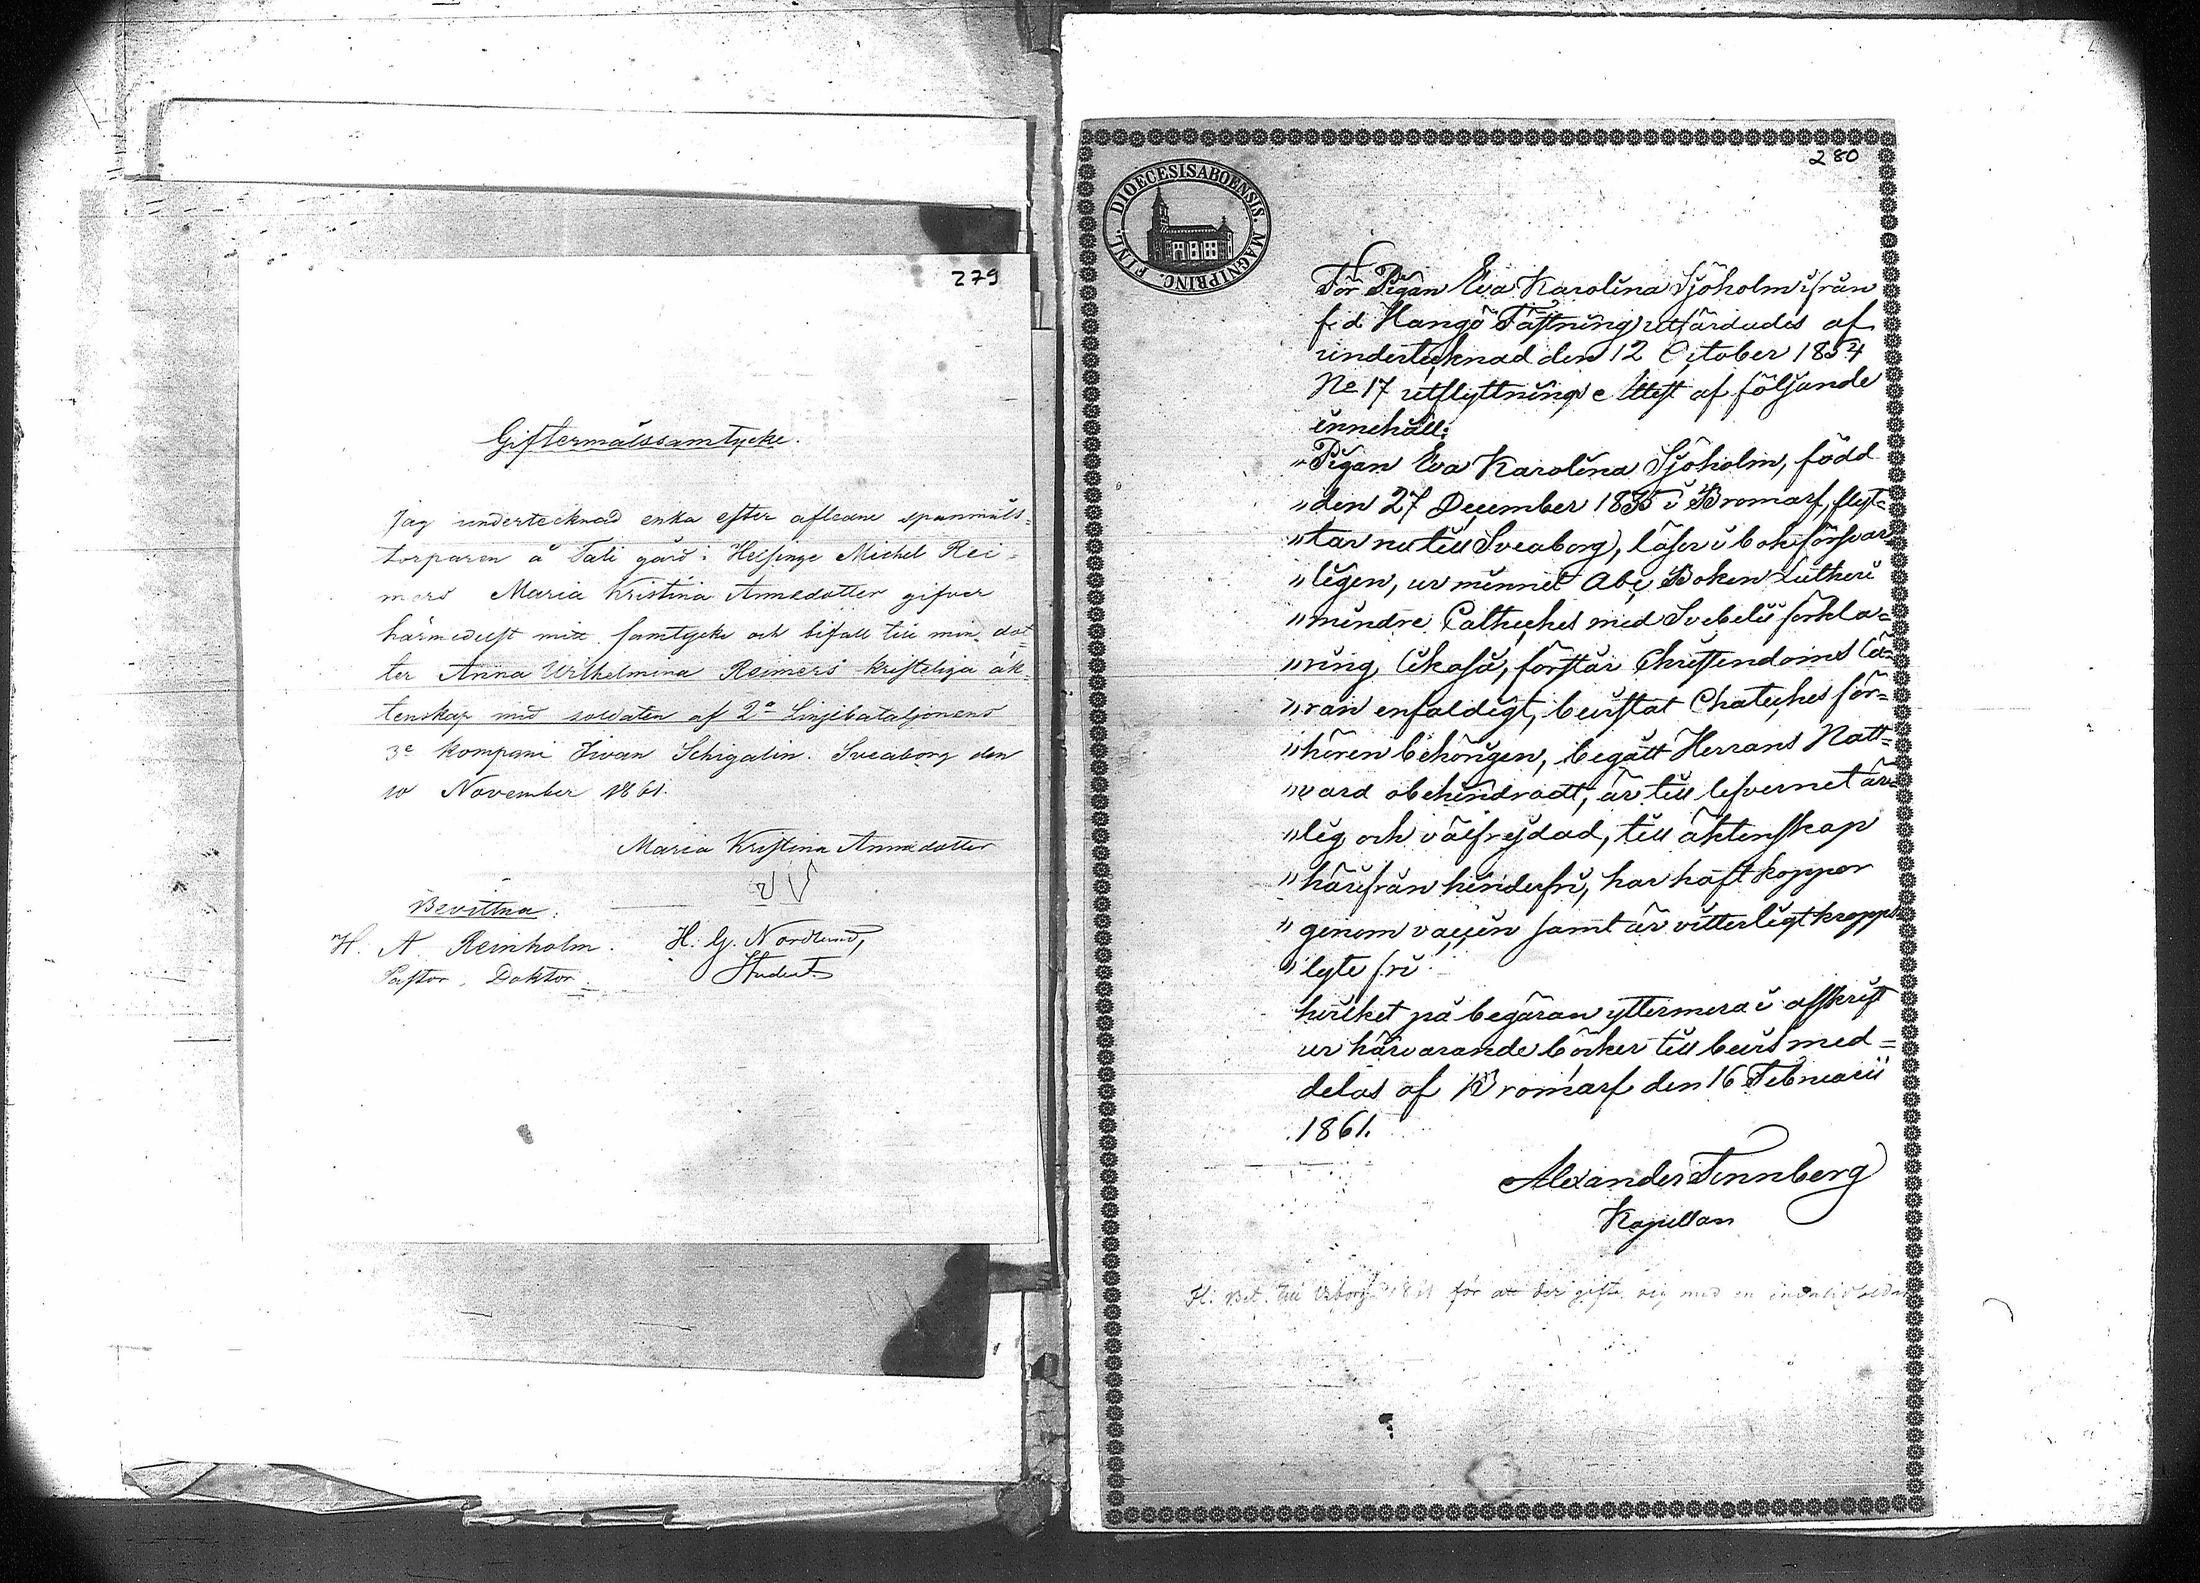 279
Giftermålssamtycke.
Jag undertecknad enka efter afledne spanmåls-
torparen å Tali gård i Helsinge Michel Rei-
mers Maria Kristina Annædotter gifver
härmedelst mitt samtycke och bifall till min dot-
ter Anna Wilhelmina Reimers kristeliga äk-
tenskap med soldaten af 2a Linjebataljonens
3e kompani Iwan Schigalin. Sveaborg den
10 November 1861.
Maria Kristina Annædotter
Bevittna:
H. A. Reinholm. H. G. Nordlund,
Pastor, Doktor. Student.
280
DIOECESIS ABOENSIS. MAGNI PRINC. FINL.
För Pigan Eva Karolina Sjöholm ifrån
f.d. Hangö Fästning utfärdades af
undertecknad den 12 October 1854
No 17 utflyttnings Attest af följande
innehåll:
"Pigan Eva Karolina Sjöholm, född
"den 27 December 1835 i Bromarf, flyt-
"tar nu till Sveaborg, läser i bok försvar-
"ligen, ur minnet Abc Boken Lutheri
"mindre Catheches med Svebelii förkla-
"ring likaså, förstår Christendoms lä-
"ran enfaldigt, bevistat Chateches för-
"hören behörigen, begått Herrans Natt-
"vard obehindradt, är till lefvernet är-
"lig och välfrejdad, till äktenskap
"härifrån hinderfri, har haft koppor
"genom vaccin samt är vitterligt kropps
"lyte fri.
hvilket på begäran yttermera i afskrift
ur härvarande böcker till bevis med-
delas af Bromarf den 16 Februarii
1861.
Alexander Finnberg
Kapellan
H: Bet. till Wiborg 1861 för att der gifta sig med en invalid soldat